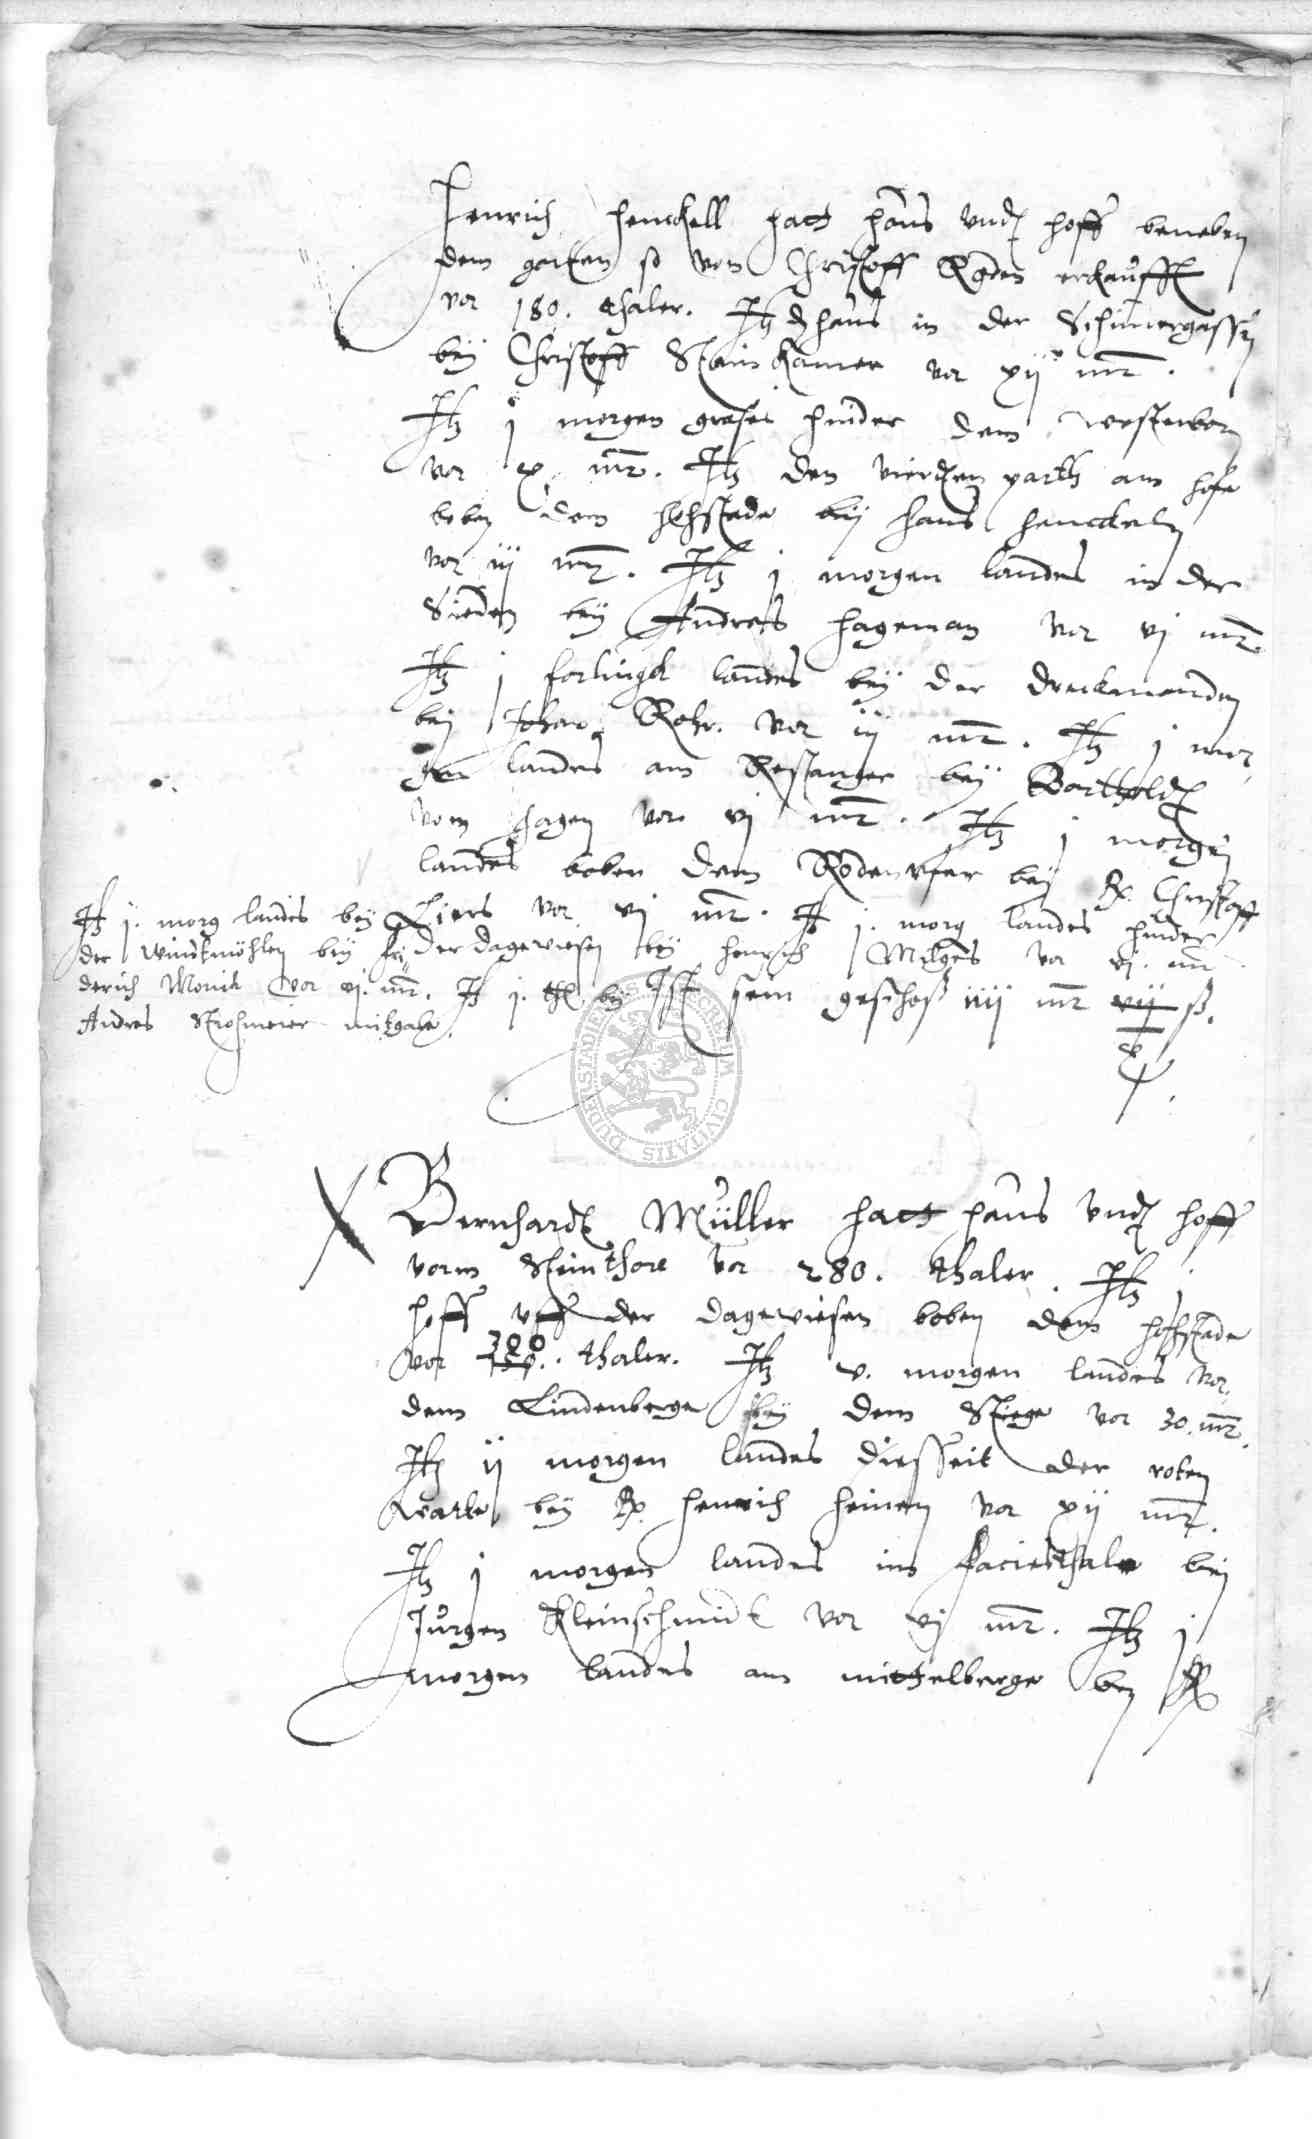 Henrich Henckell hatt haus undt hoff beneben
dem garten so von Christoff Roden erkaufft
vor 180. thaler. Itz d haus in der Schimergassen
bey Christoff Steinkamer vor xij mr.
Itz j morgen grases hinder dem westerborn
vor x mr. Itz den vierden parth am hofe
boben dem hehstade bey Hans Henckeln
vor iij mr. Itz j morgen landes in der
Sieden bey Andreas Hageman vor vj mr.
Itz j forlingk landes bey der dreckmenden
bey Johan Rohr. vor iij mr. Itz j mor
gen landes am Restanger bey Bartholdt
vom Hagen vor vj mr. Itz j morgen
landes boben dem Rodenufer bey R. Christoff
Liers vor vj mr. It j. morg landes hinder
der dagewiesen bey Henrich Milges vor vj. mr
Ist sein geschoß iiij mr vij ß.
x
It j. morg landes bey
der Windtmöhlen bey Fri
derich Monich vor vj. mr. It j. thl bey
Andres Strohmeier mitgabe
Bernhardt Müller hatt haus undt hoff
vorm Steinthore vor 280. thaler. Itz j
hoff uff der dagewiesen boben dem hehstade
300
vor 150. thaler. Itz v. morgen landes vor
dem Lindenberge bey dem Stiege vor 30. mr.
Itz ij morgen landes diesseit der roten
warte bey R. Henrich Heinen vor xij mr.
Itz j morgen landes im faciesthale bey
Jürgen Kleinschmidt vor vj mr. Itz j
morgen landes am mittelberge bey R
DUDERSTADIENSIS SECRETUM CIVITATIS